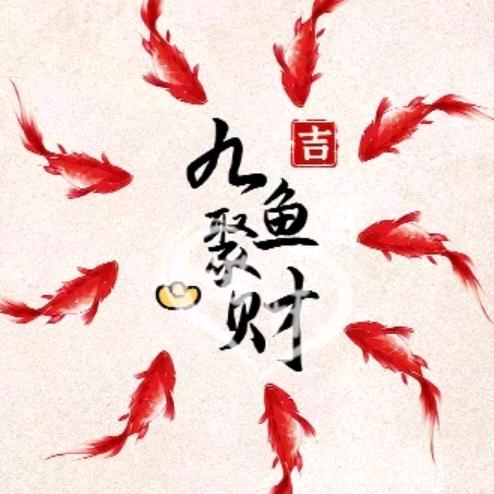 九鱼
聚财
吉